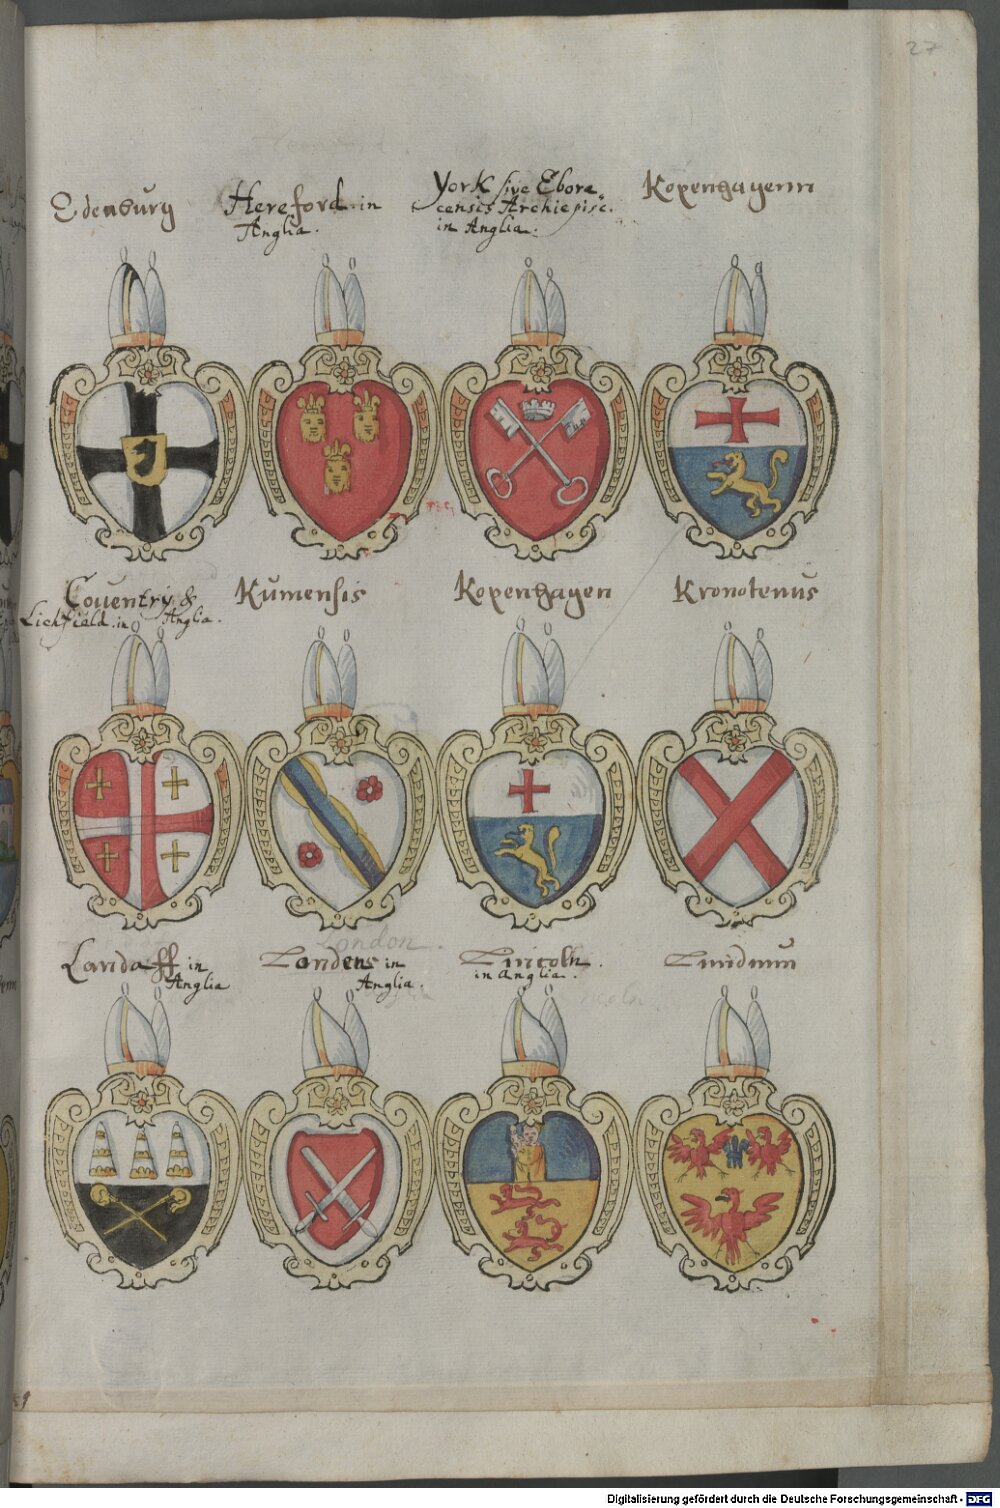 27
Edenburg
Hereford in
Anglia.
York sive Ebora„
censis Archiepisc.
in Anglia.
Kopenhagenn
Coventry &
Lichfiald. in Anglia.
Kumensis
Kopenhagen
Kronotenus
London.
Landaff in
Anglia
Londens in
Anglia.
Lincoln.
in Anglia.
Lundnum
Digitalisierung gefördert durch die Deutsche Forschungsgemeinschaft - DFG